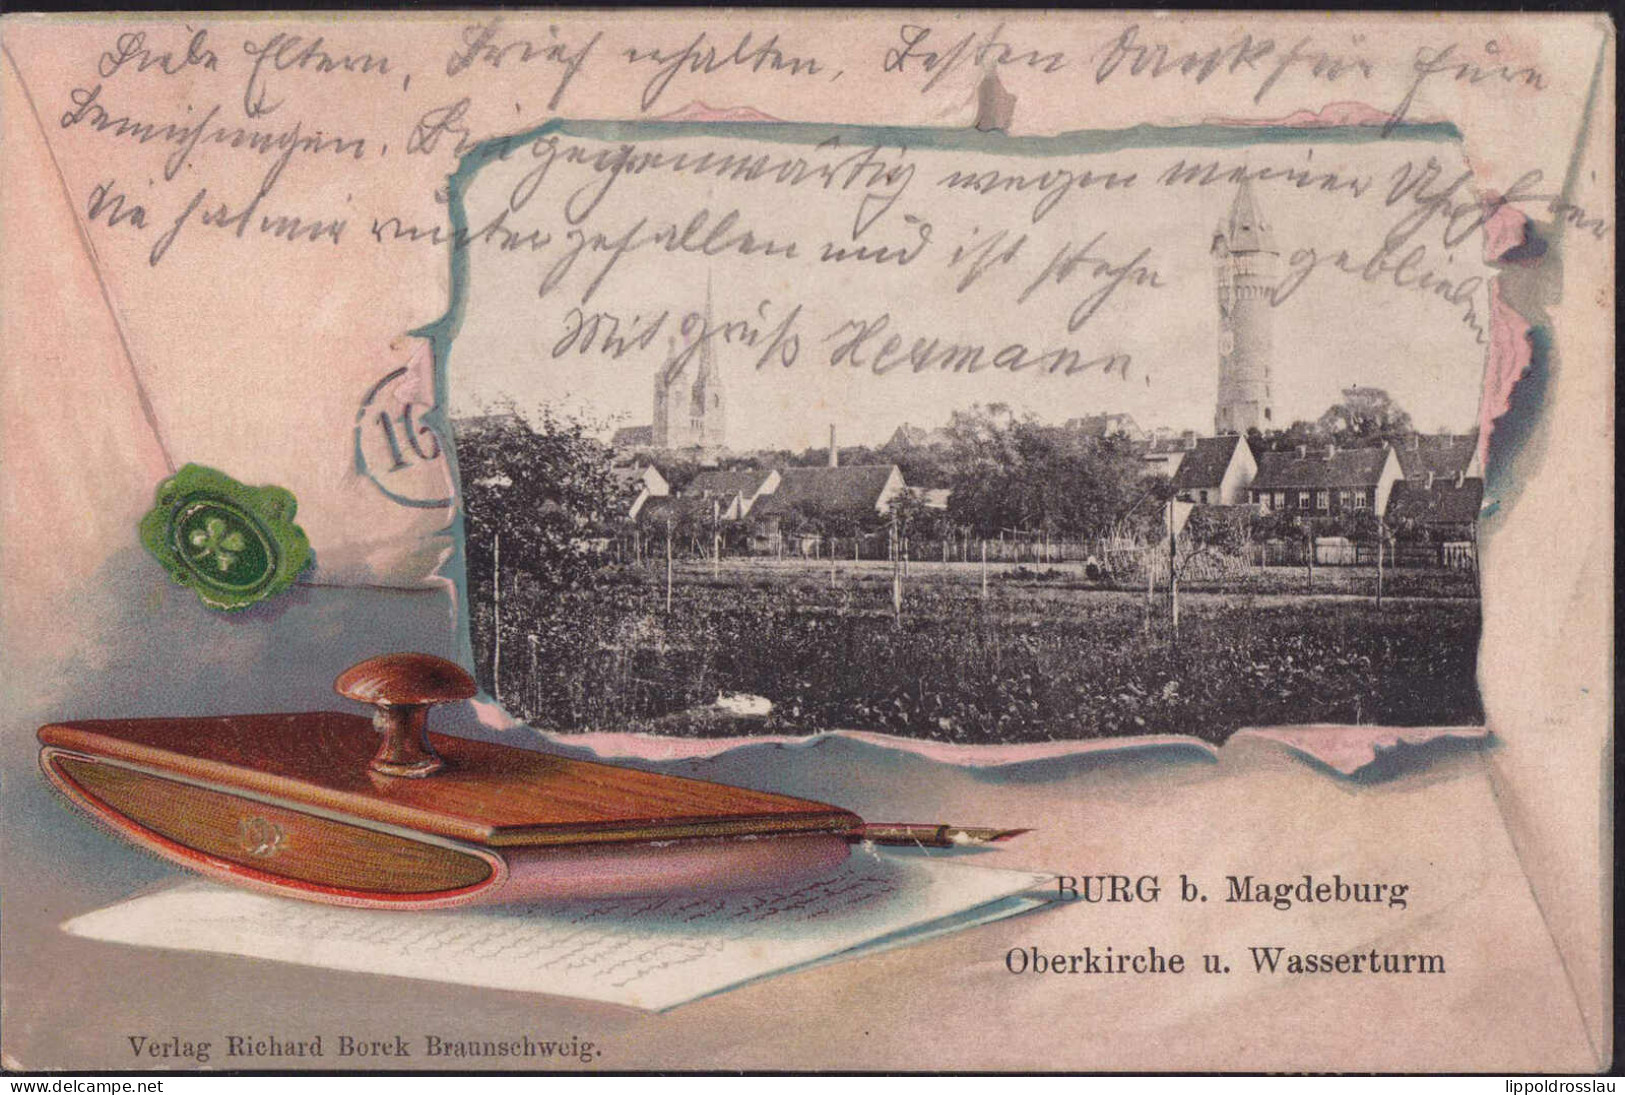 Liebe Eltern, Brief erhalten, Besten Dank für Eure
Bemühungen. Bin gegenwärtig wegen meiner Uhr hier
die hat mir runter gefallen und ist stehn geblieben
Mit Gruß Hermann.
16
BURG b. Magdeburg
Oberkirche u. Wasserturm
Verlag Richard Borek Braunschweig.
lippoldrosslau